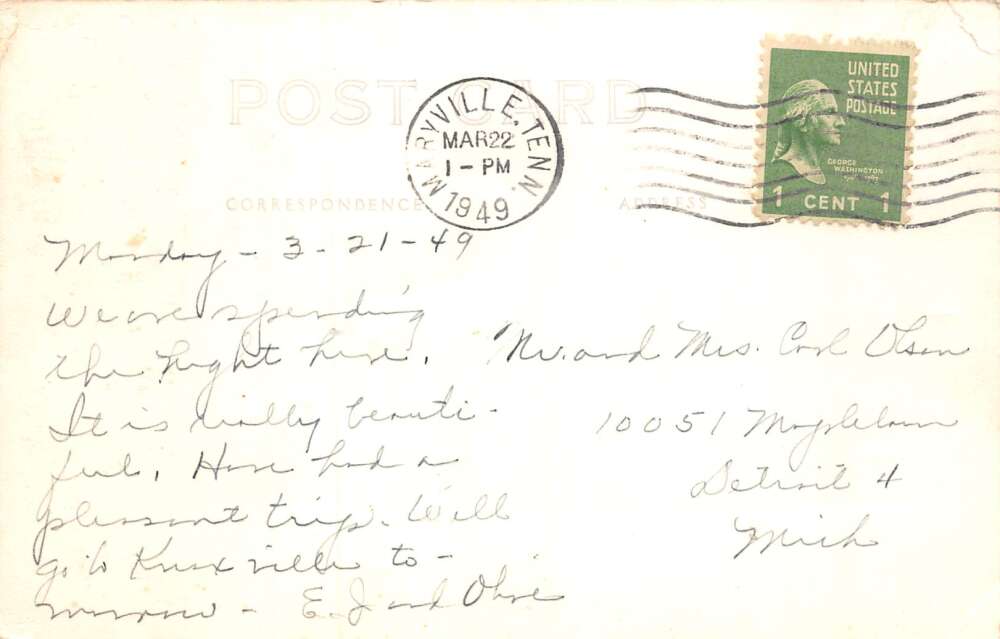 POST CARD
MARYVILLE, TENN.
MAR 22
1 - PM
1949
UNITED
STATES
POSTAGE
GEORGE
WASHINGTON
1 CENT 1
CORRESPONDENCE
ADDRESS
Monday - 3-21-49
We are spending
the night here.
It is really beauti-
ful. Have had a
pleasant trip. Will
go to Knoxville to-
morrow - E.J and Olive
Mr. and Mrs. Carl Olson
10051 Maplelawn
Detroit 4
Mich